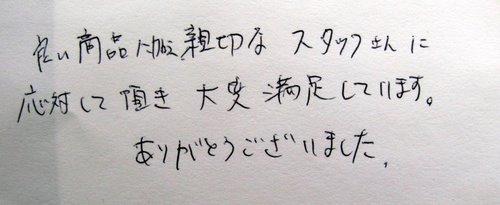 良い商品に加え、親切な スタッフさんに
応対して頂き 大変 満足しています。
ありがとうございました。